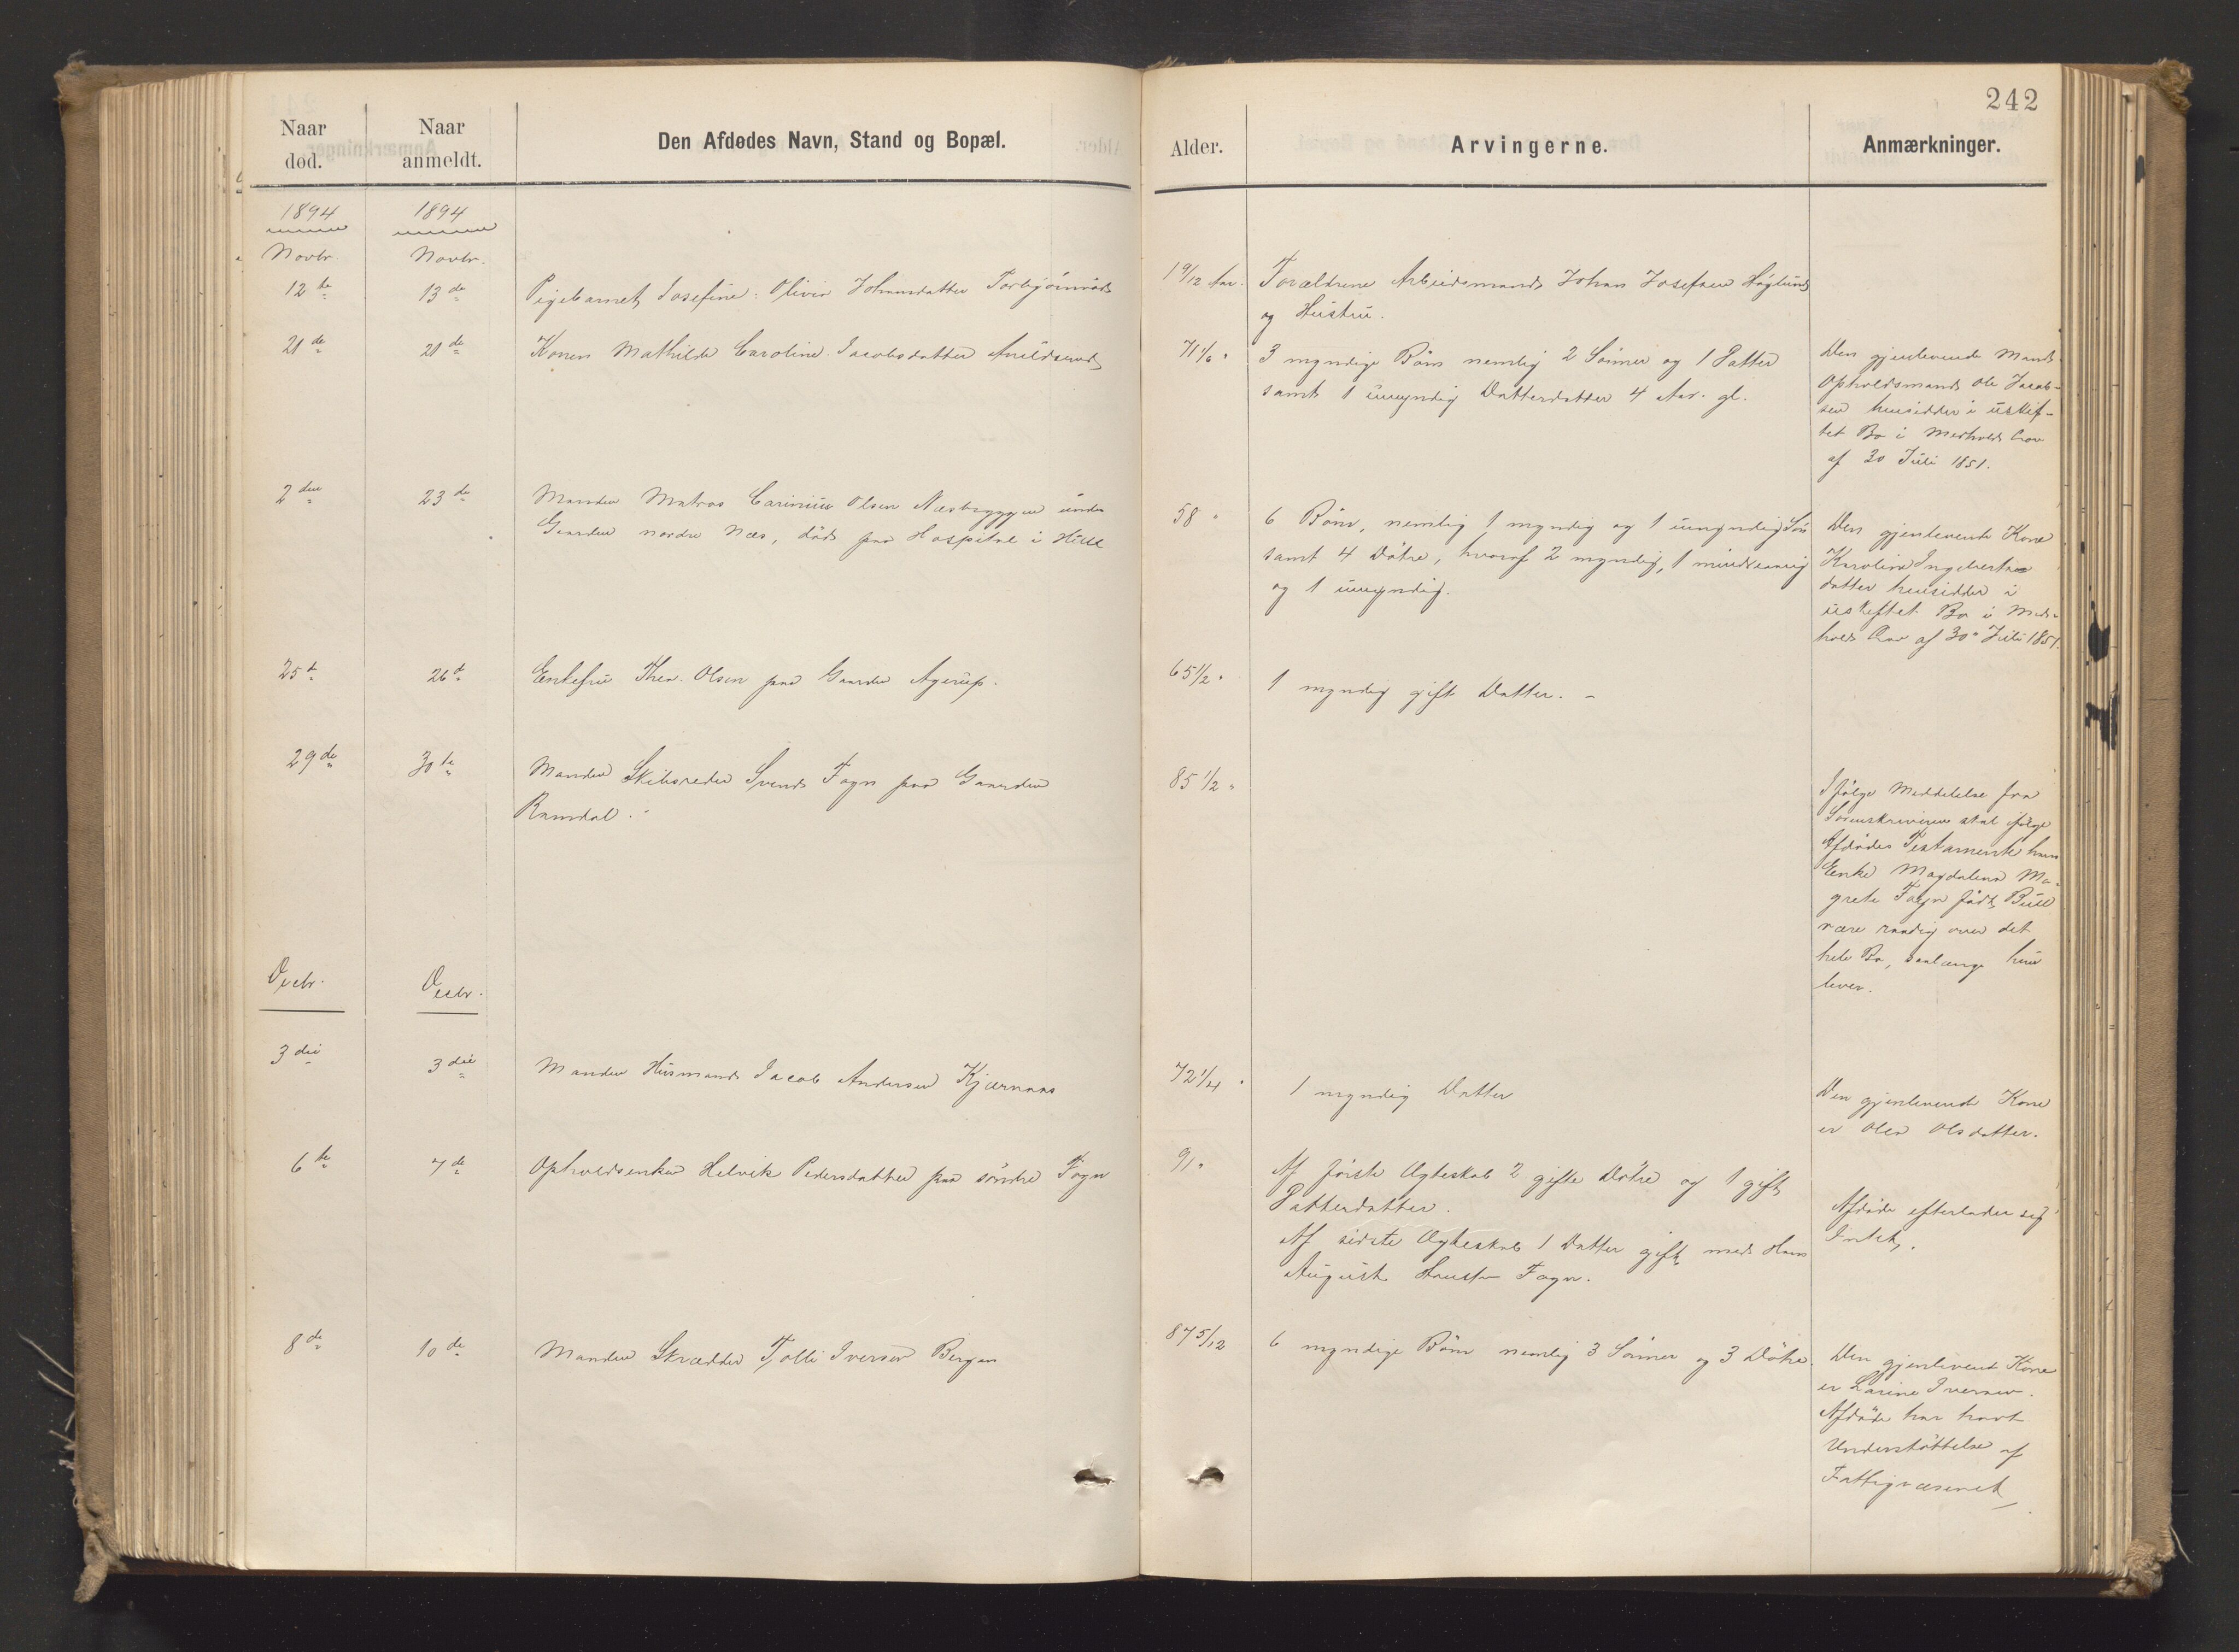 242
Naar død.
Naar anmeldt.
Den Afdødes Navn, Stand og Bopæl.
Alder.
Arvingerne.
Anmærkninger.
1894
1894
Novbr.
Novbr.
12te
13de
Pigebarnet Josefine Olivia Johansdatter
1 9/12 Aar.
Forældrene Arbeidsmand Johan Josefsen Höglund
og Hustru.
21de
21de
Konen Mathilde Caroline Jacobsdatter
71 1/6 "
3 myndige Børn nemlig 2 Sönner og 1 Datter
samt 1 umyndig Datterdatter 4 Aar. gl.
Den gjenlevende Mand
Opholdsmand Ole Jacob-
sen hensidder i uskif-
tet Bo i Medhold Lov
af 30 Juli 1851.
2den
23de
Manden Matros Carinius Olsen Næsbryggen under
Gaarden nordre Næs, död paa Hospital i Hull
58 "
6 Börn, nemlig 1 myndig og 1 umyndig Sön
samt 4 Dötre, hvoraf 2 myndig, 1 mindreaarig
og 1 umyndig.
Den gjenlevende Kone
Karoline Ingebrets
datter hensidder i
uskiftet Bo i Med-
hold Lov af 30 Juli 1851.
25de
26de
Enkefru Thea Olsen paa Gaarden Agerup.
65 1/2 "
1 myndig gift Datter. -
29de
30te
Manden Skibsreder Svend Fogn paa Gaarden
Ramdal.
85 1/2 "
Ifölge Meddelelse fra
Sorenskriveren skal fölge
Afdödes Testamente hans
Enke Magdalena Ma-
grete Fogn född Bull
være raadig over det
hele Bo, saalænge hun
lever.
Decbr.
Decbr.
3die
3die
Manden Husmand Jacob Andersen Kjærnaas
72 1/4 "
1 myndig Datter
Den gjenlevende Kone
er Olea Olsdatter.
6te
7de
Opholdsenken Helvik Pedersdatter paa söndre Fogn
91 "
Af förste Ægteskab 2 gifte Dötre og 1 gift
Datterdatter.
Af sidste Ægteskab 1 Datter gift med Hans
August Fogn.
Afdöde efterlader sig
Intet.
8de
10de
Manden Skrædder Tjolli Iversen Bergan
87 5/12
6 myndige Börn nemlig 3 Sönner og 3 Dötre.
Den gjenlevende Kone
er Larine Iversen.
Afdöde har havt
Understöttelse af
Fattigvæsenet